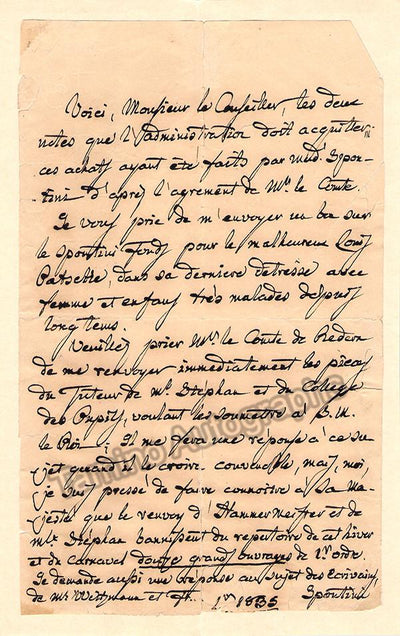 Voici, Monsieur le Conseiller, les deux
notes que l'administration doit acquitter,
ces achats ayant été faits par Mad. Spon-
tini d'après l'agrement de Mr. le Comte.
Je vous prie de m'envoyer un bon sur
le Spontini-Fonds pour le malheureux Louis
dans sa derniere détresse avec
femme et enfans très malades depuis
long tems.
Veuillez prier Mr. le Comte de Redern
de me renvoyer immédiatement les pièces
du Tuteur de Mr. Stéphan et du College
des Pupils, voulant les soumettre à S. M.
le Roi. Il me fera une réponse à ce su-
jet quand il le croira convenable, mais, moi,
je suis pressé de faire connoître à Sa Ma-
jesté que le renvoy d'Hammermeister et de
Mr. Stéphan bannissent du repertoire de cet hiver
et du Carnaval douze grands ouvrages de 1er ordre.
Je demande aussi une réponse au sujet des Ecrivains,
de Mr. et 1835 Spontini
Tamino Autographs